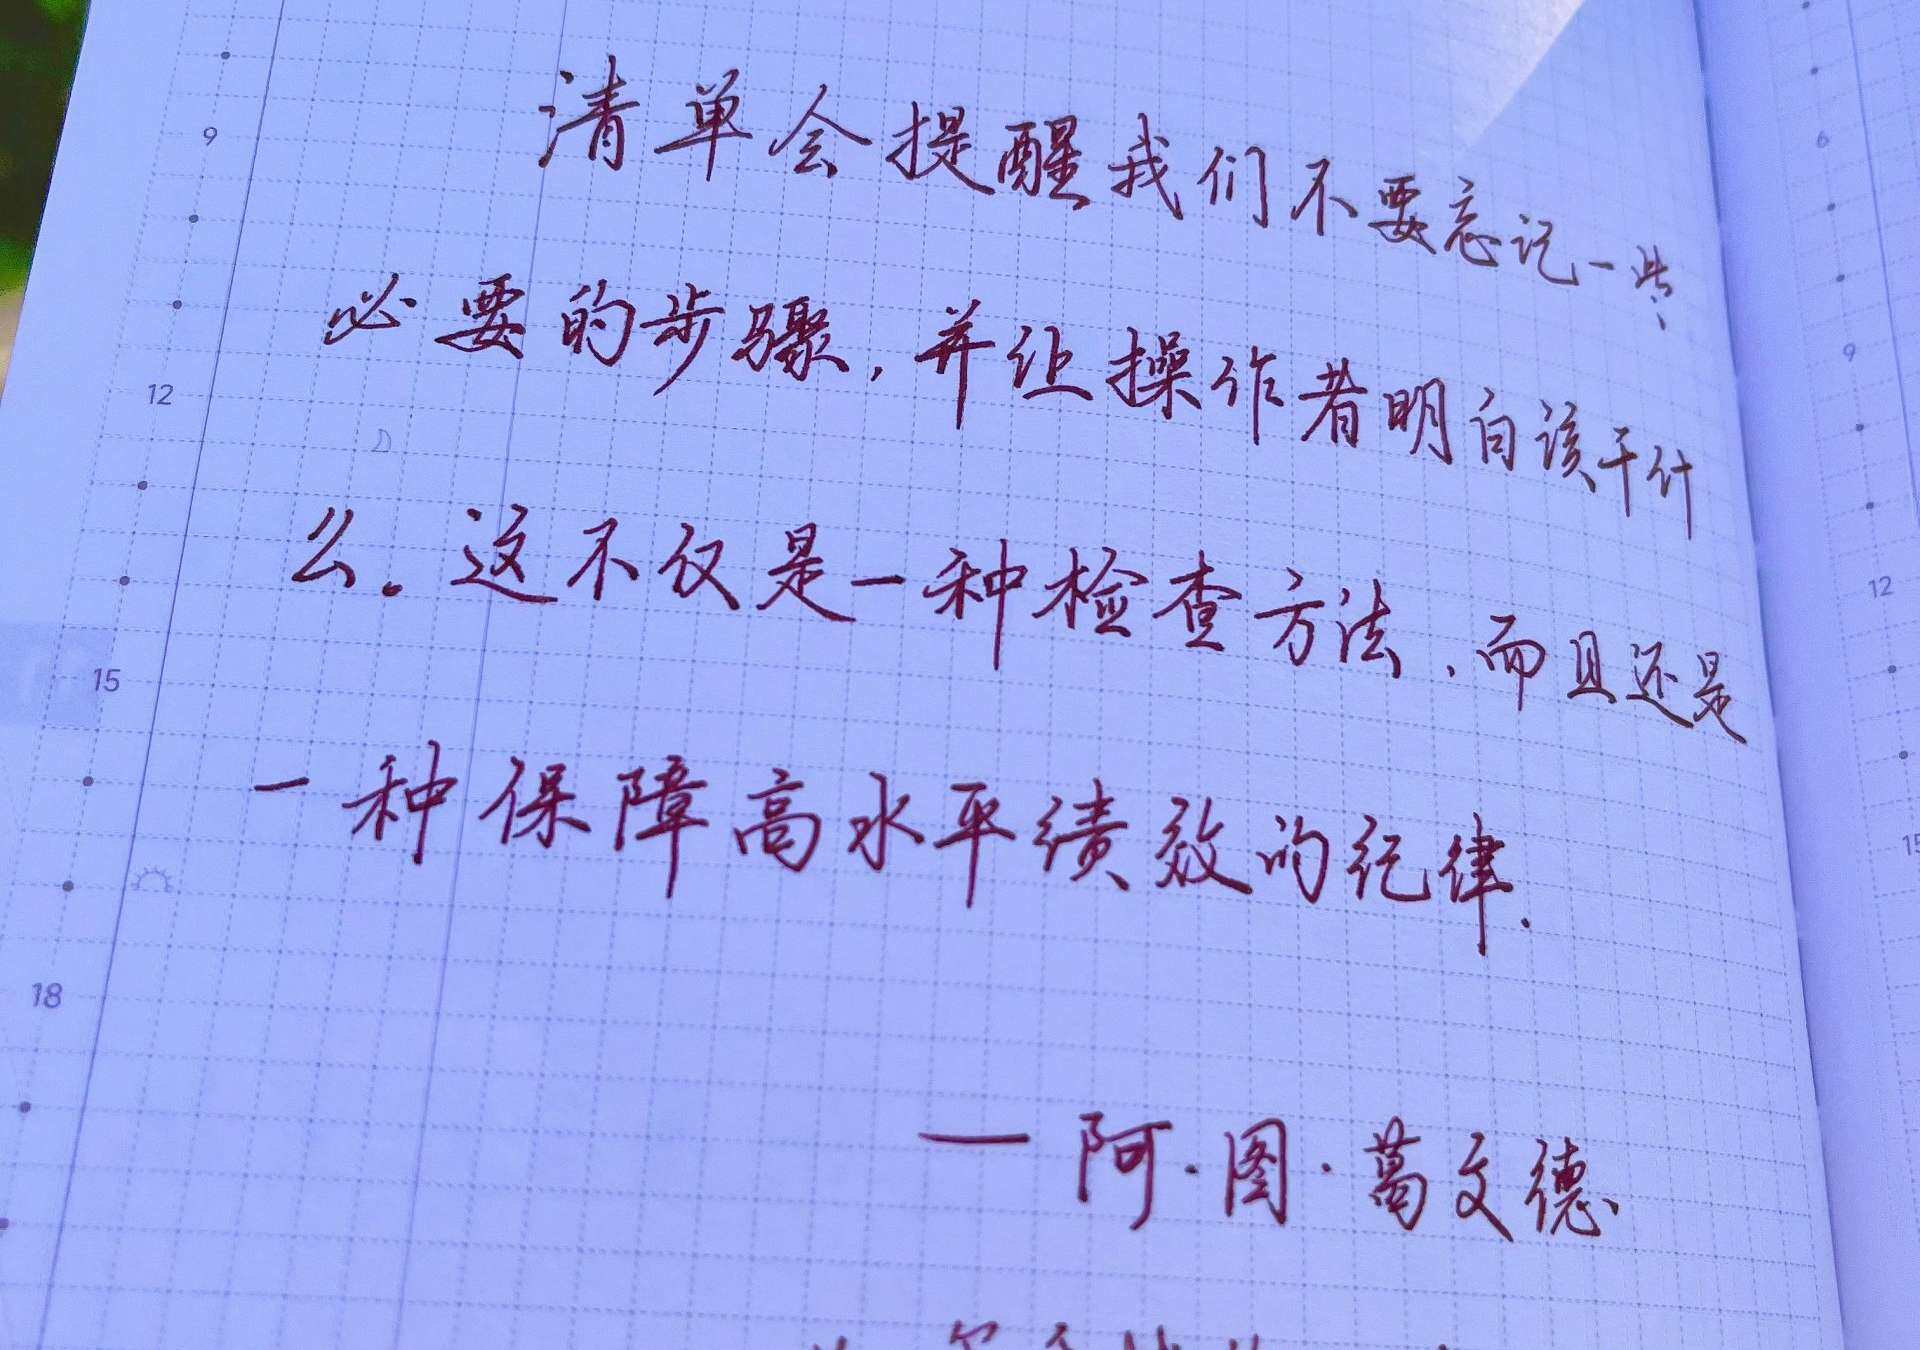 清单会提醒我们不要忘记一些
必要的步骤,并让操作者明白该干什
么。这不仅是一种检查方法,而且还是
一种保障高水平绩效的纪律.
— 阿·图·葛文德
9
12
15
18
6
9
12
15